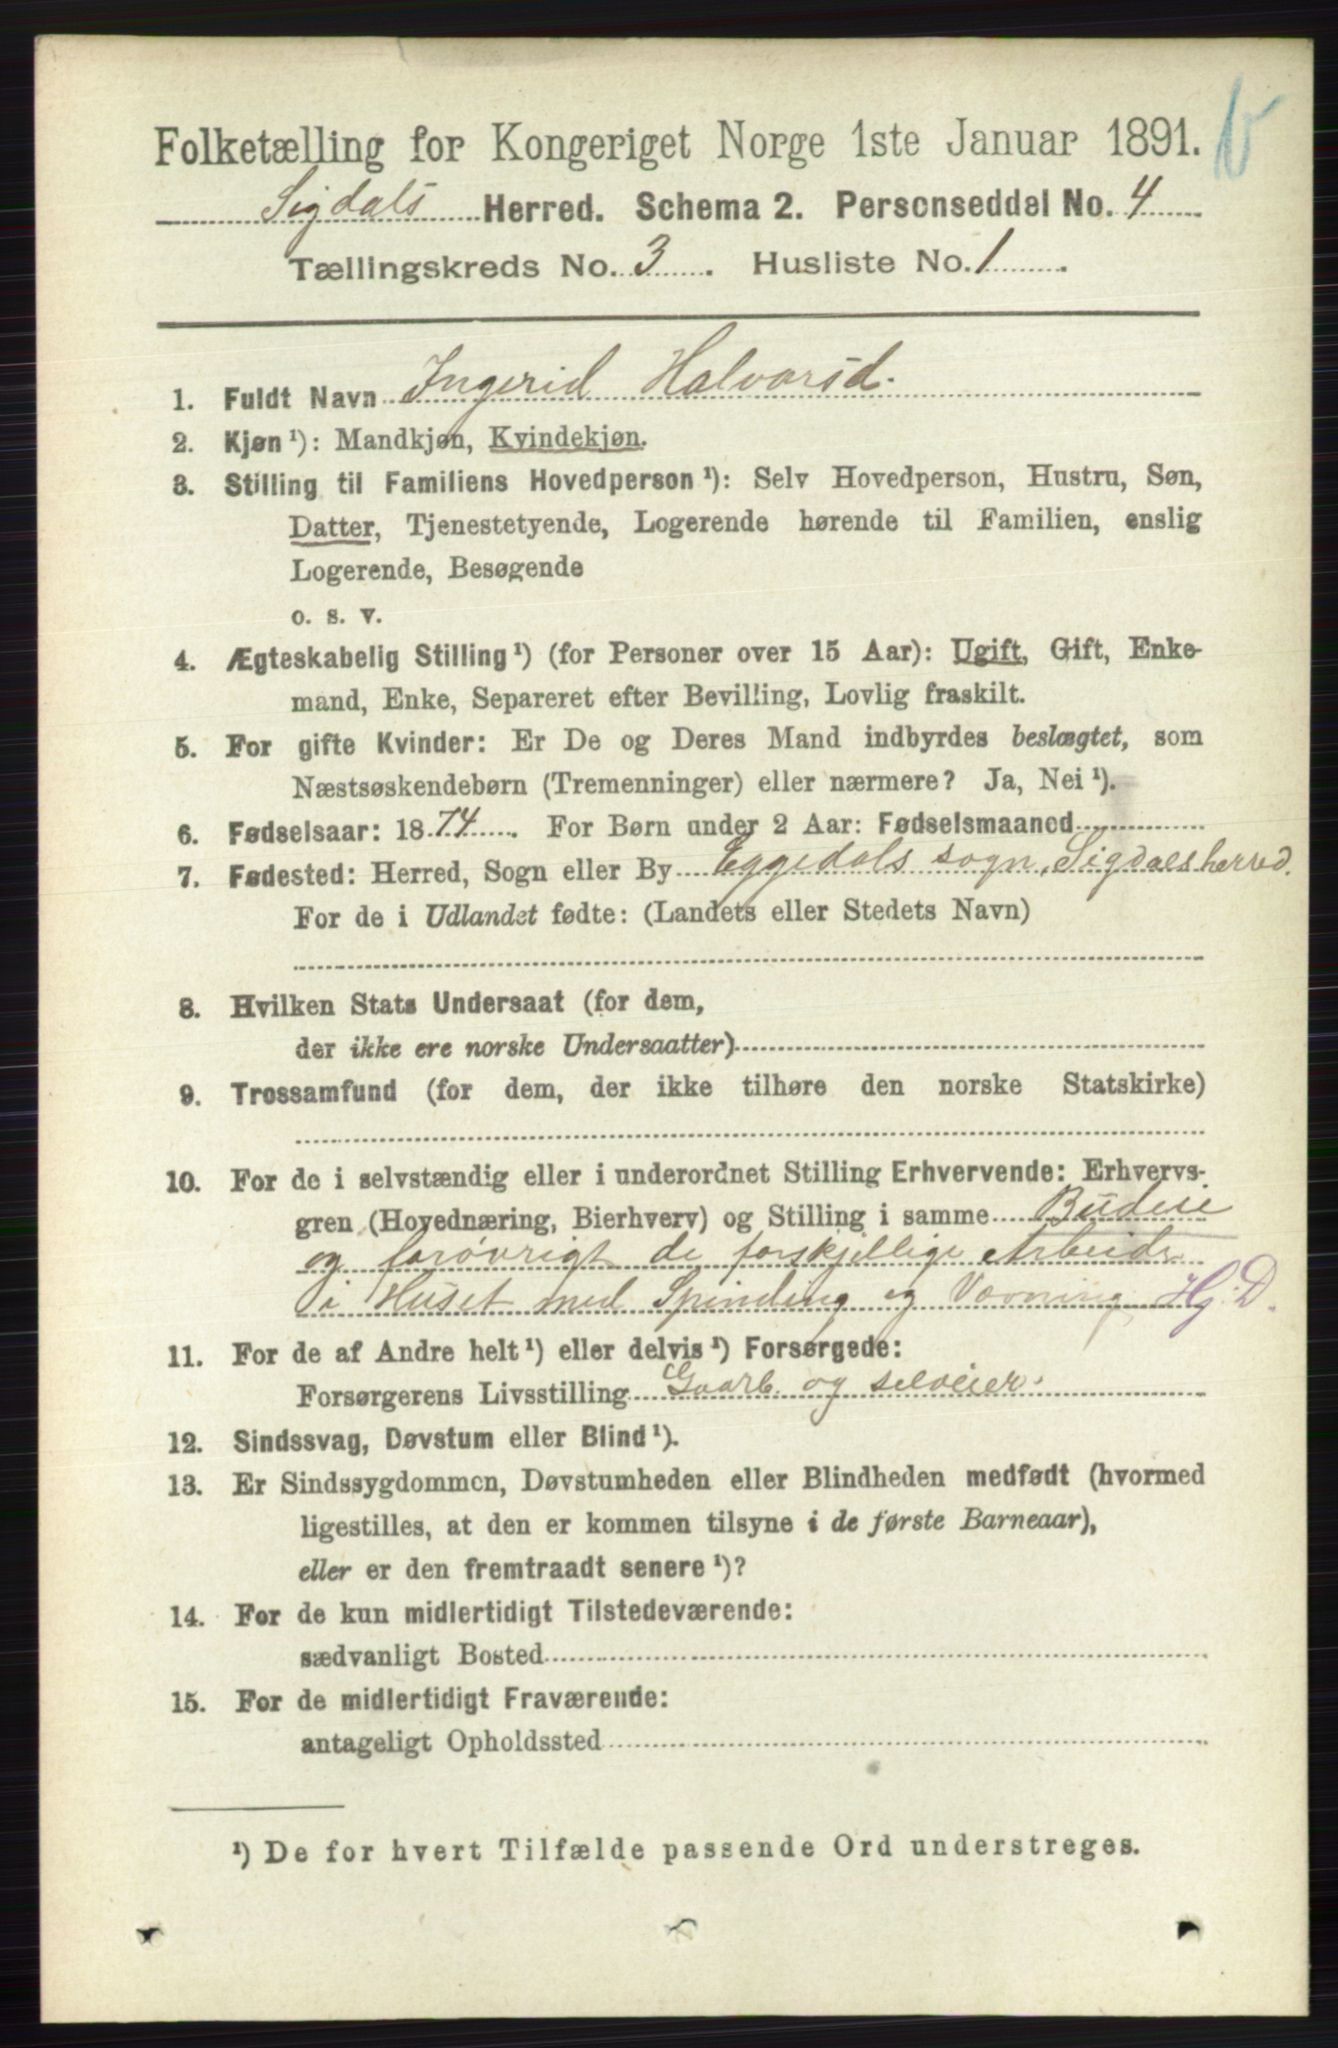 Folketælling for Kongeriget Norge 1ste Januar 1891.
Sigdals Herred. Schema 2. Personseddel No. 4
Tællingskreds No. 3. Husliste No. 1.
1. Fuldt Navn Ingerid Halvorsd.
2. Kjøn ¹): Mandkjøn, Kvindekjøn.
3. Stilling til Familiens Hovedperson ¹): Selv Hovedperson, Hustru, Søn,
Datter, Tjenestetyende, Logerende hørende til Familien, enslig
Logerende, Besøgende
o. s. v.
4. Ægteskabelig Stilling ¹) (for Personer over 15 Aar): Ugift, Gift, Enke-
mand, Enke, Separeret efter Bevilling, Lovlig fraskilt.
5. For gifte Kvinder: Er De og Deres Mand indbyrdes beslægtet, som
Næstsøskendebørn (Tremenninger) eller nærmere? Ja, Nei ¹).
6. Fødselsaar: 1874. For Børn under 2 Aar: Fødselsmaaned
7. Fødested: Herred, Sogn eller By Eggedals sogn, Sigdals herred.
For de i Udlandet fødte: (Landets eller Stedets Navn)
8. Hvilken Stats Undersaat (for dem,
der ikke ere norske Undersaatter)
9. Trossamfund (for dem, der ikke tilhøre den norske Statskirke)
10. For de i selvstændig eller i underordnet Stilling Erhvervende: Erhvervs-
gren (Hovednæring, Bierhverv) og Stilling i samme Budeie
og forøvrigt de forskjellige Arbeide
i Huset med Spinding og Vævning Hj. D.
11. For de af Andre helt ¹) eller delvis ¹) Forsørgede:
Forsørgerens Livsstilling Gaarb. og selveier.
12. Sindssvag, Døvstum eller Blind ¹).
13. Er Sindssygdommen, Døvstumheden eller Blindheden medfødt (hvormed
ligestilles, at den er kommen tilsyne i de første Barneaar),
eller er den fremtraadt senere ¹)?
14. For de kun midlertidigt Tilstedeværende:
sædvanligt Bosted
15. For de midlertidigt Fraværende:
antageligt Opholdssted
¹) De for hvert Tilfælde passende Ord understreges.